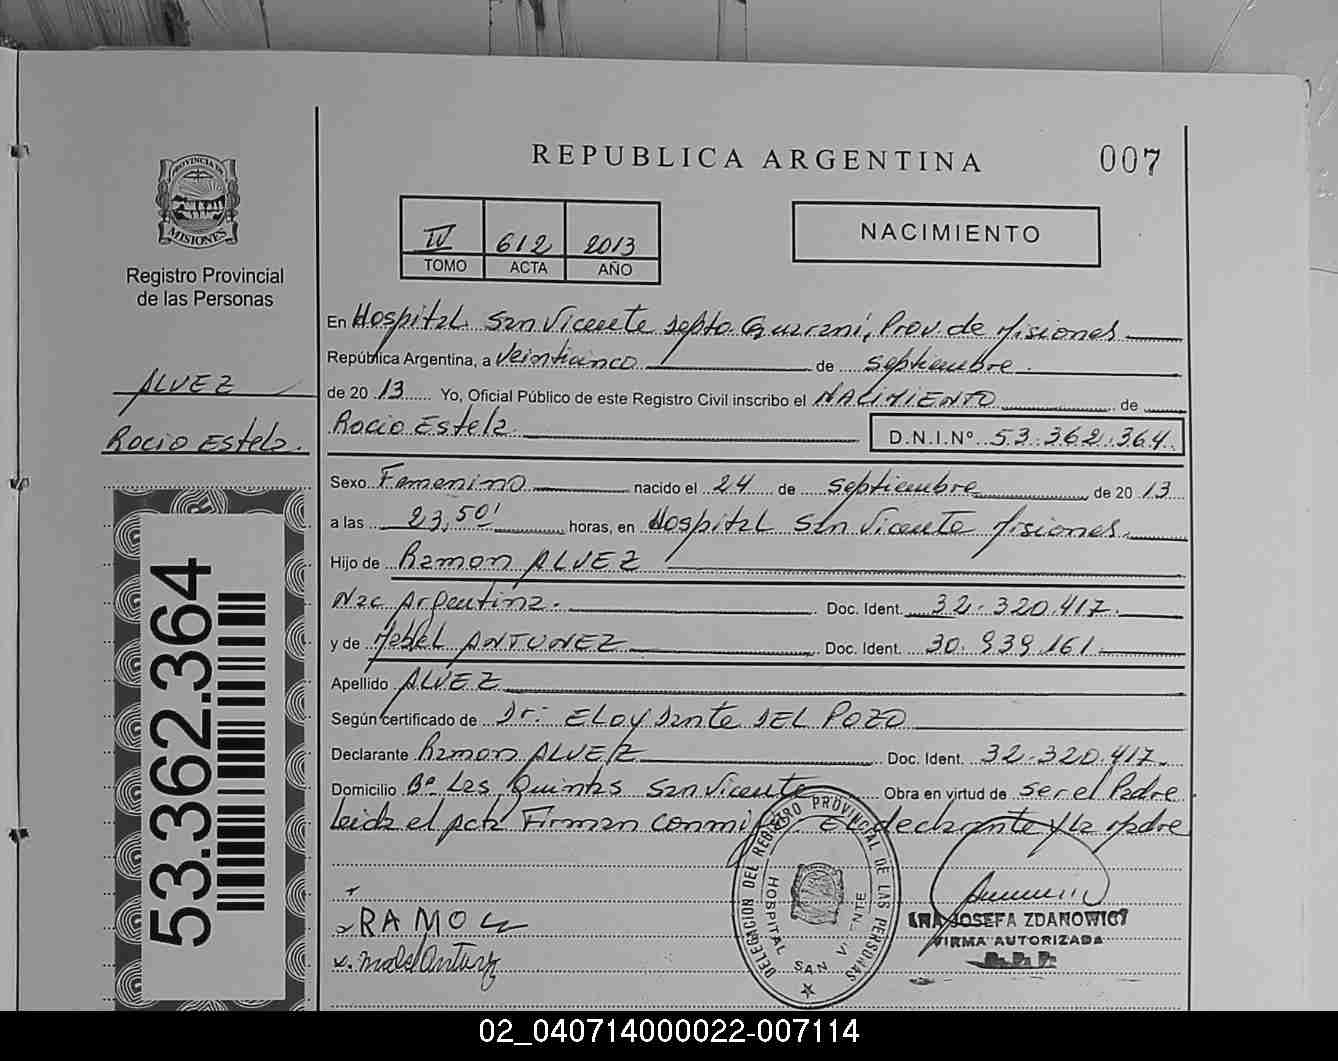 REPUBLICA ARGENTINA
007
PROVINCIA DE
MISIONES
Registro Provincial
de las Personas
IV 612 2013
TOMO ACTA AÑO
NACIMIENTO
ALVEZ
Rocio Estela.
53.362.364
En Hospital San Vicente depto Guarani, Prov. de Misiones
República Argentina, a Veinticinco de septiembre
de 2013 Yo, Oficial Público de este Registro Civil inscribo el NACIMIENTO de
Rocio Estela D.N.I.Nº 53.362.364
Sexo Femenino nacido el 24 de septiembre de 2013
a las 23,50' horas, en Hospital San Vicente Misiones.
Hijo de Ramon ALVEZ
Nac Argentina. Doc. Ident. 32.320.417.
y de Mabel ANTUNEZ Doc. Ident. 30.939.161
Apellido ALVEZ
Según certificado de Dr: ELOY Dante DEL POZO
Declarante Ramon ALVEZ Doc. Ident. 32.320.417.
Domicilio Bº Las Quintas San Vicente Obra en virtud de ser el Padre
leida el acta Firman conmigo El declarante y la Madre
RAMON
DELEGACION DEL REGISTRO PROVINCIAL DE LAS PERSONAS
HOSPITAL SAN VICENTE
JOSEFA ZDANOWICZ
FIRMA AUTORIZADA
02_040714000022-007114